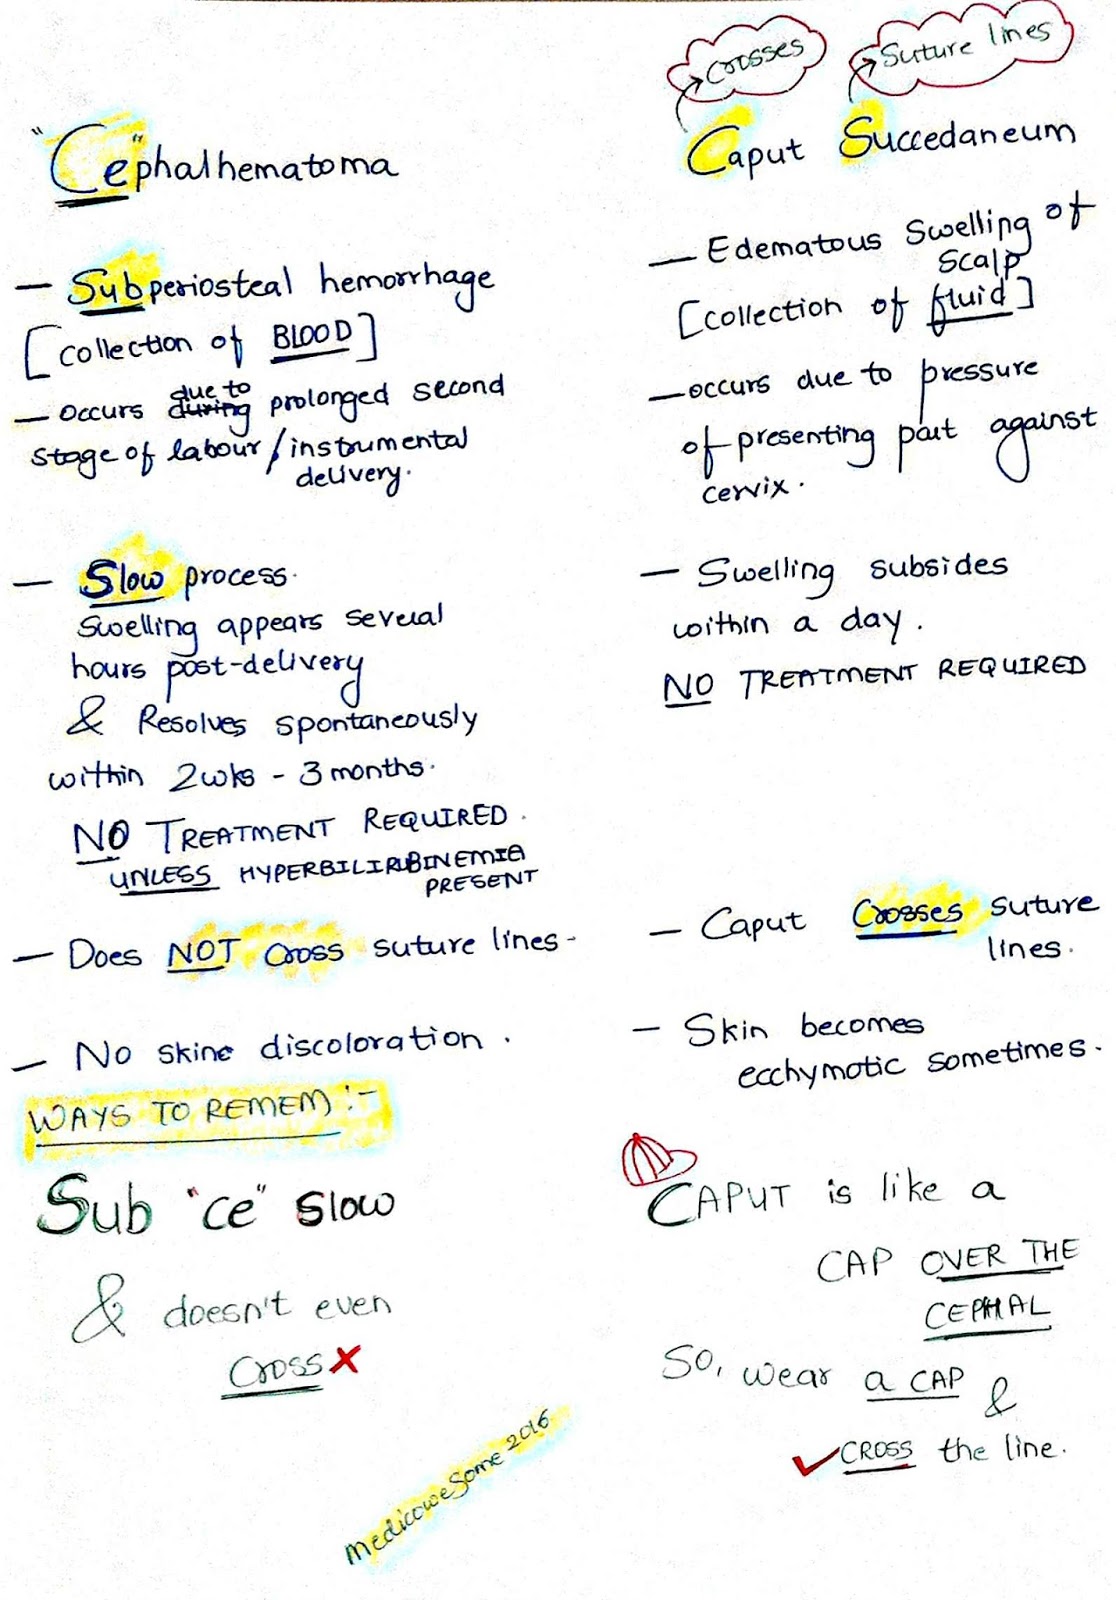 "Ce"phalhematoma
— Subperiosteal hemorrhage
[collection of BLOOD]
— Occurs during due to prolonged second
stage of labour/instrumental
delivery.
— Slow process.
Swelling appears several
hours post-delivery
& Resolves spontaneously
within 2wks - 3 months.
NO TREATMENT REQUIRED.
UNLESS HYPERBILIRUBINEMIA
PRESENT
— Does NOT cross suture lines-
— No skin discoloration.
WAYS TO REMEM:-
Sub "ce" slow
& doesn't even
cross x
crosses
Suture lines
Caput Succedaneum
— Edematous Swelling of
scalp
[collection of fluid]
— occurs due to pressure
of presenting part against
cervix.
— Swelling subsides
within a day.
NO TREATMENT REQUIRED
— Caput Crosses suture
lines.
— Skin becomes
ecchymotic sometimes.
CAPUT is like a
CAP OVER THE
CEPHAL
SO, wear a CAP &
✓CROSS the line.
medicowesome 2016